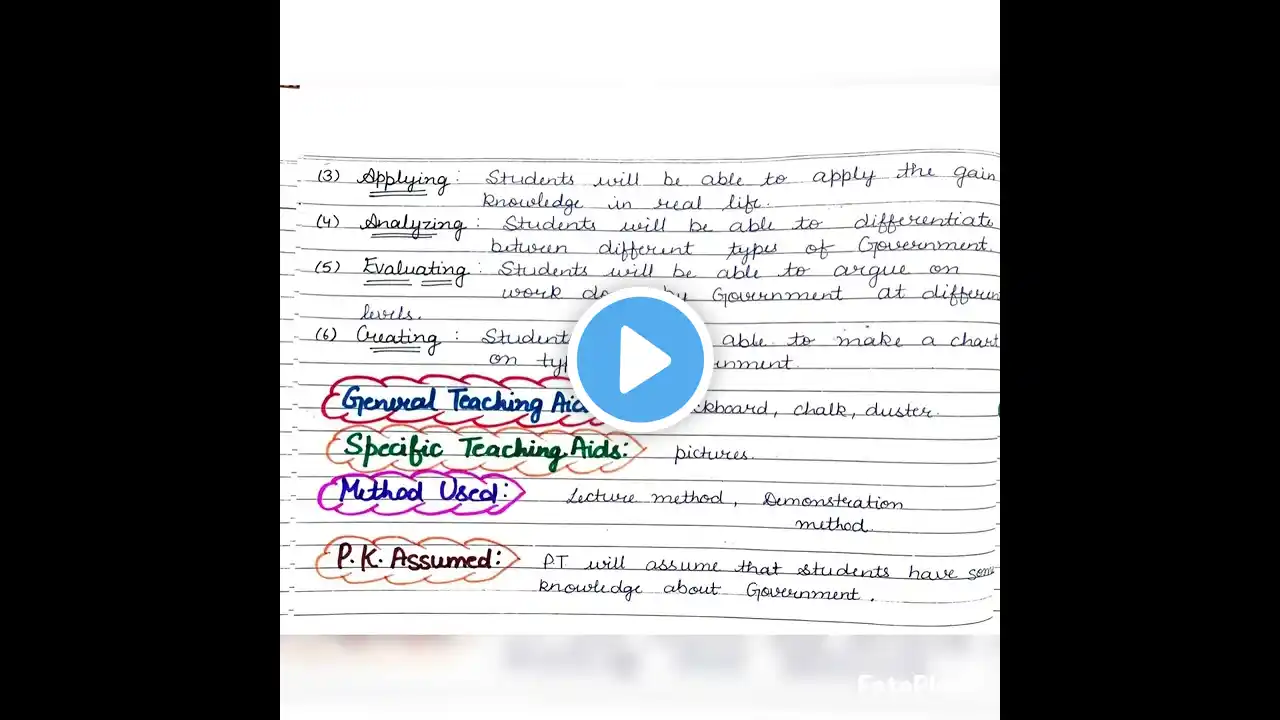 (3) Applying : Students will be able to apply the gain
knowledge in real life.
(4) Analyzing : Students will be able to differentiate
between different types of Government.
(5) Evaluating : Students will be able to argue on
work by Government at
levels.
(6) Creating : able to make a chart
on
General Teaching chalk, duster.
Specific Teaching Aids: pictures.
Method Used: Lecture method, Demonstration
method.
P.K. Assumed: PT will assume that students have some
knowledge about Government.